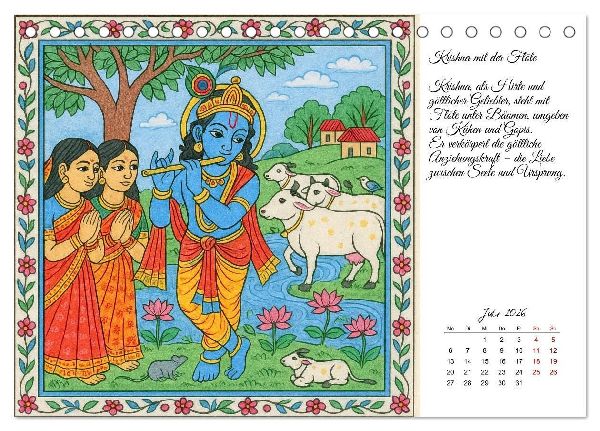 Krishna mit der Flöte
Krishna, als Hirte und
göttlicher Geliebter, steht mit
Flöte unter Bäumen, umgeben
von Kühen und Gopis.
Er verkörpert die göttliche
Anziehungskraft – die Liebe
zwischen Seele und Ursprung.
Juli 2026
Mo Di Mi Do Fr Sa So
1 2 3 4 5
6 7 8 9 10 11 12
13 14 15 16 17 18 19
20 21 22 23 24 25 26
27 28 29 30 31